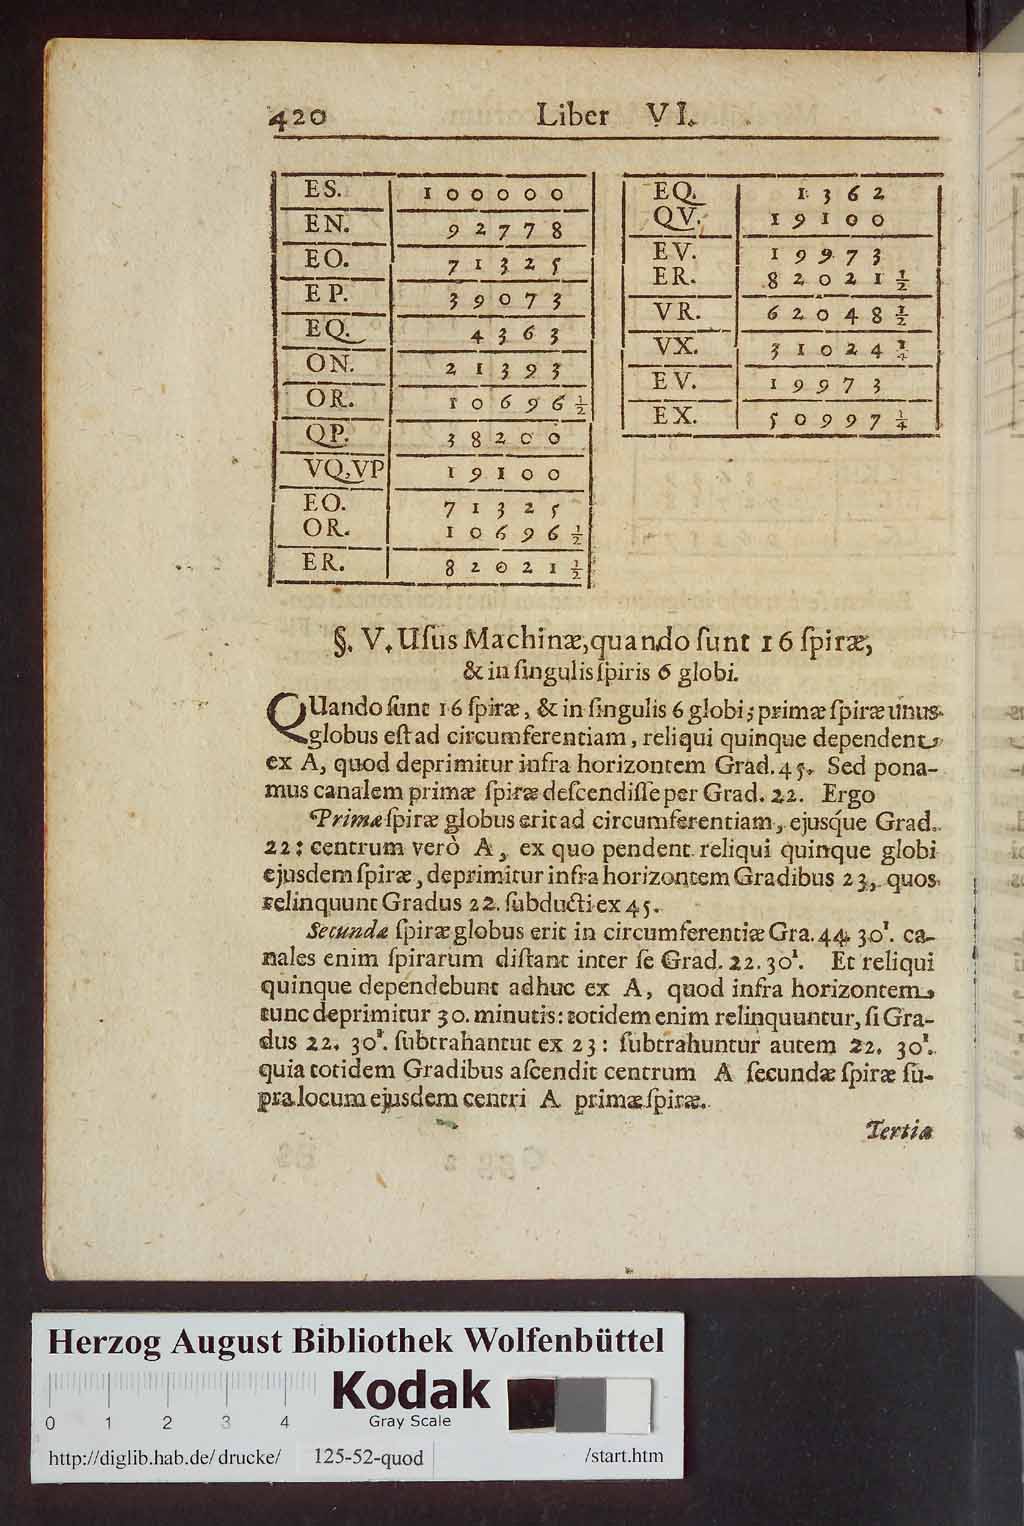 420 Liber VI.
ES. 100000
EN. 92778
EO. 71325
EP. 39073
EQ. 4363
ON. 21393
OR. 10696½
QP. 38200
VQ,VP 19100
EO. 71325
OR. 10696½
ER. 82021½
EQ. 1362
QV. 19100
EV. 19973
ER. 82021½
VR. 62048½
VX. 31024¼
EV. 19973
EX. 50997¼
§. V. Uſus Machinæ, quando ſunt 16 ſpiræ,
& in ſingulis ſpiris 6 globi.
QUando ſunt 16 ſpiræ, & in ſingulis 6 globi; primæ ſpiræ unus
globus eſt ad circumferentiam, reliqui quinque dependent
ex A, quod deprimitur infra horizontem Grad. 45. Sed pona-
mus canalem primæ ſpiræ deſcendiſſe per Grad. 22. Ergo
Primæ ſpiræ globus erit ad circumferentiam, ejusq́ue Grad.
22: centrum verò A, ex quo pendent reliqui quinque globi
ejusdem ſpiræ, deprimitur infra horizontem Gradibus 23, quos
relinquunt Gradus 22. ſubducti ex 45.
Secundæ ſpiræ globus erit in circumferentiæ Gra. 44. 30¹. ca-
nales enim ſpirarum diſtant inter ſe Grad. 22. 30¹. Et reliqui
quinque dependebunt adhuc ex A, quod infra horizontem
tunc deprimitur 30. minutis: totidem enim relinquuntur, ſi Gra-
dus 22. 30¹. ſubtrahantut ex 23: ſubtrahuntur autem 22. 30¹.
quia totidem Gradibus aſcendit centrum A ſecundæ ſpiræ ſu-
pra locum ejusdem centri A primæ ſpiræ.
Tertia
Herzog August Bibliothek Wolfenbüttel
Kodak
Gray Scale
0 1 2 3 4
http://diglib.hab.de/drucke/ 125-52-quod /start.htm